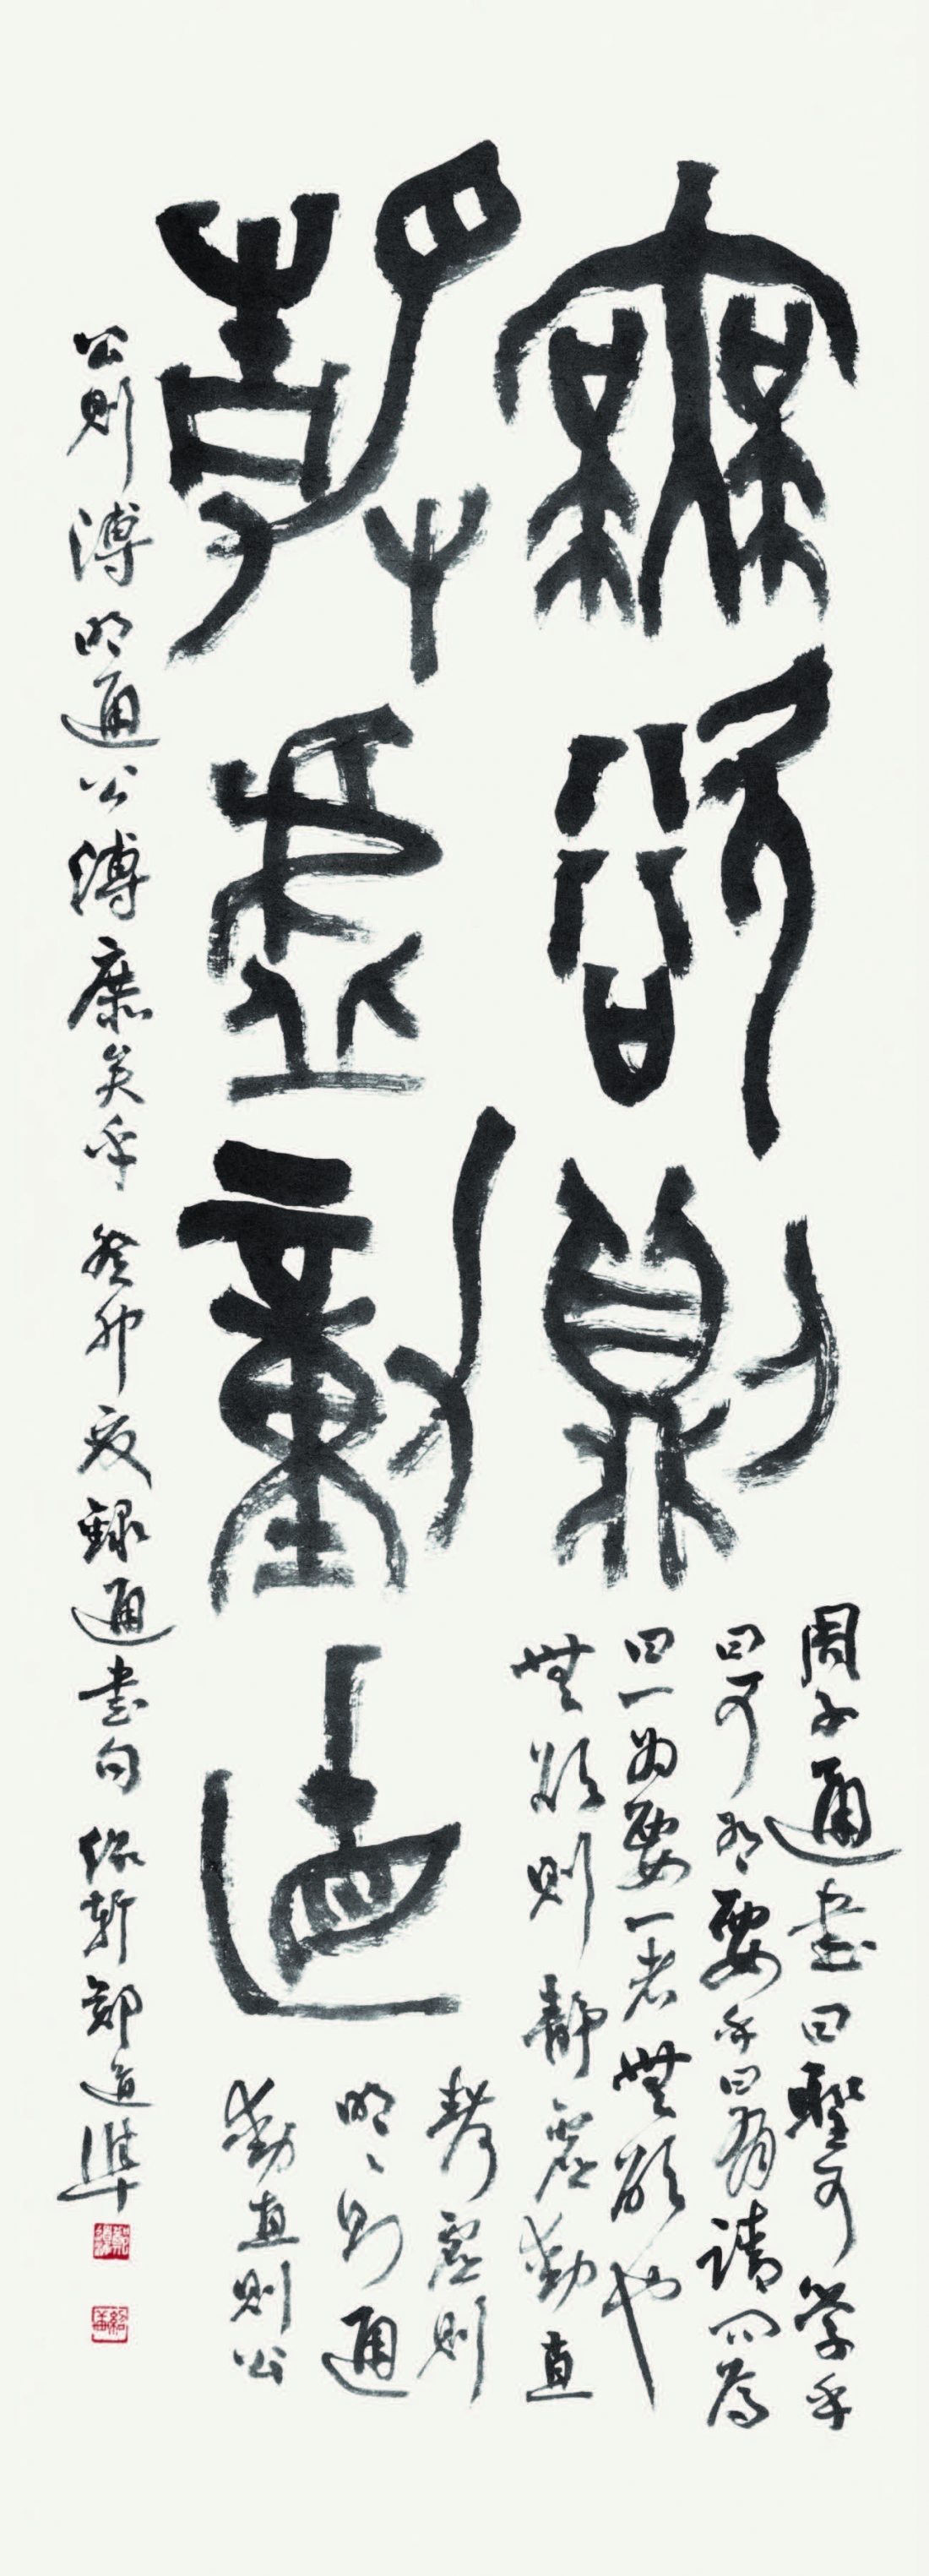 無欲則
靜虛動直
周子通書曰聖可學乎
曰可有要乎曰有請問焉
曰一为要一者無欲也
無欲則靜虛動直
靜虛則
明明則通
動直則公
公則溥明通公溥庶矣乎 癸卯夏錄通書句 鄭道準